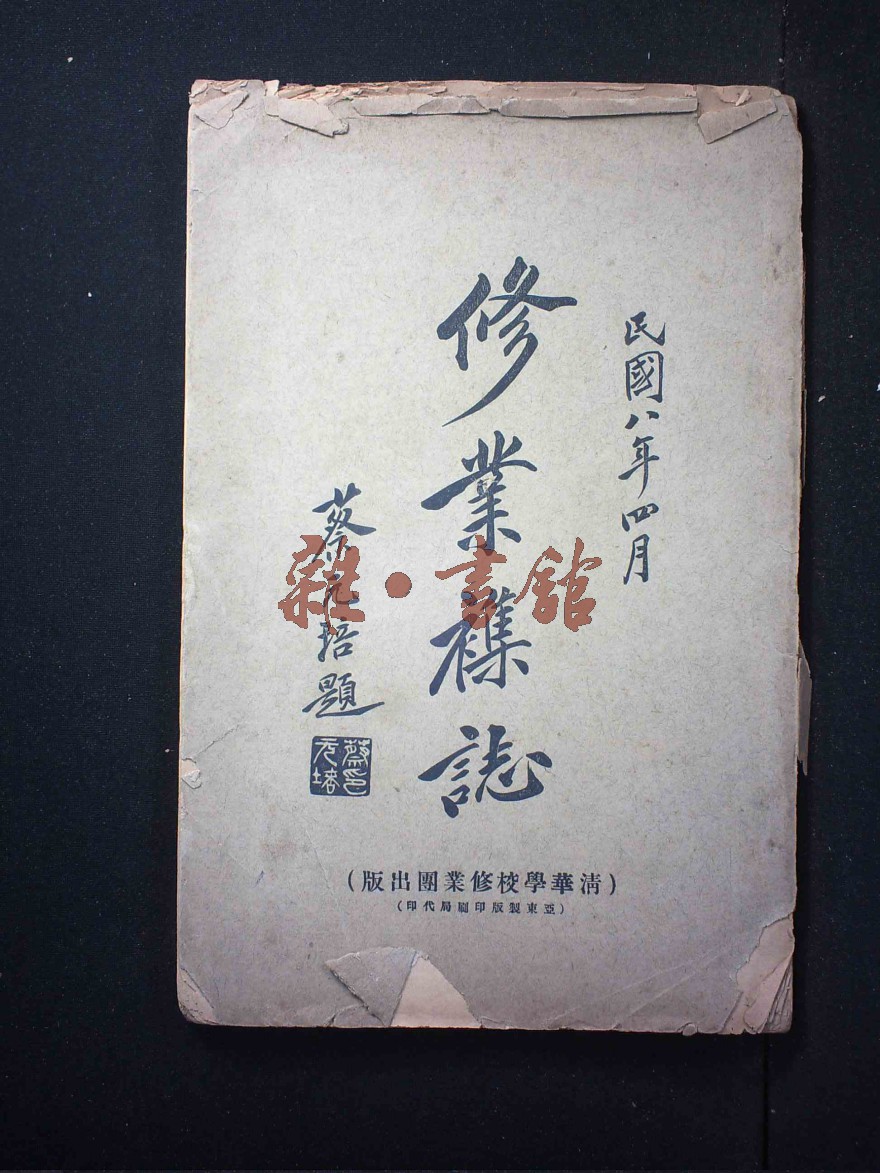 民國八年四月
修業襍誌
蔡元培題
蔡元培印
(清華學校修業團出版)
(亞東製版印刷局代印)
雜·書舘